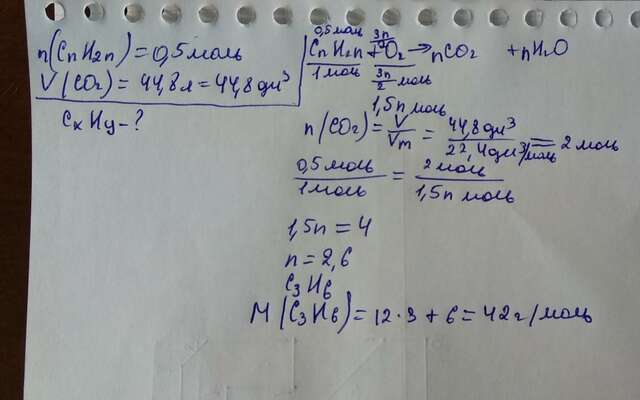 n(CnH2n) = 0,5 моль
V(CO2) = 44,8 л = 44,8 дм³
CxHy - ?
0,5 моль 3n
CnH2n + O2 → nCO2 + nH2O
1 моль 3n/2 моль
1,5n моль
n(CO2) = V/Vm = 44,8 дм³/22,4 дм³/моль = 2 моль
0,5 моль/1 моль = 2 моль/1,5n моль
1,5n = 4
n = 2,6
C3H6
M(C3H6) = 12·3 + 6 = 42 г/моль